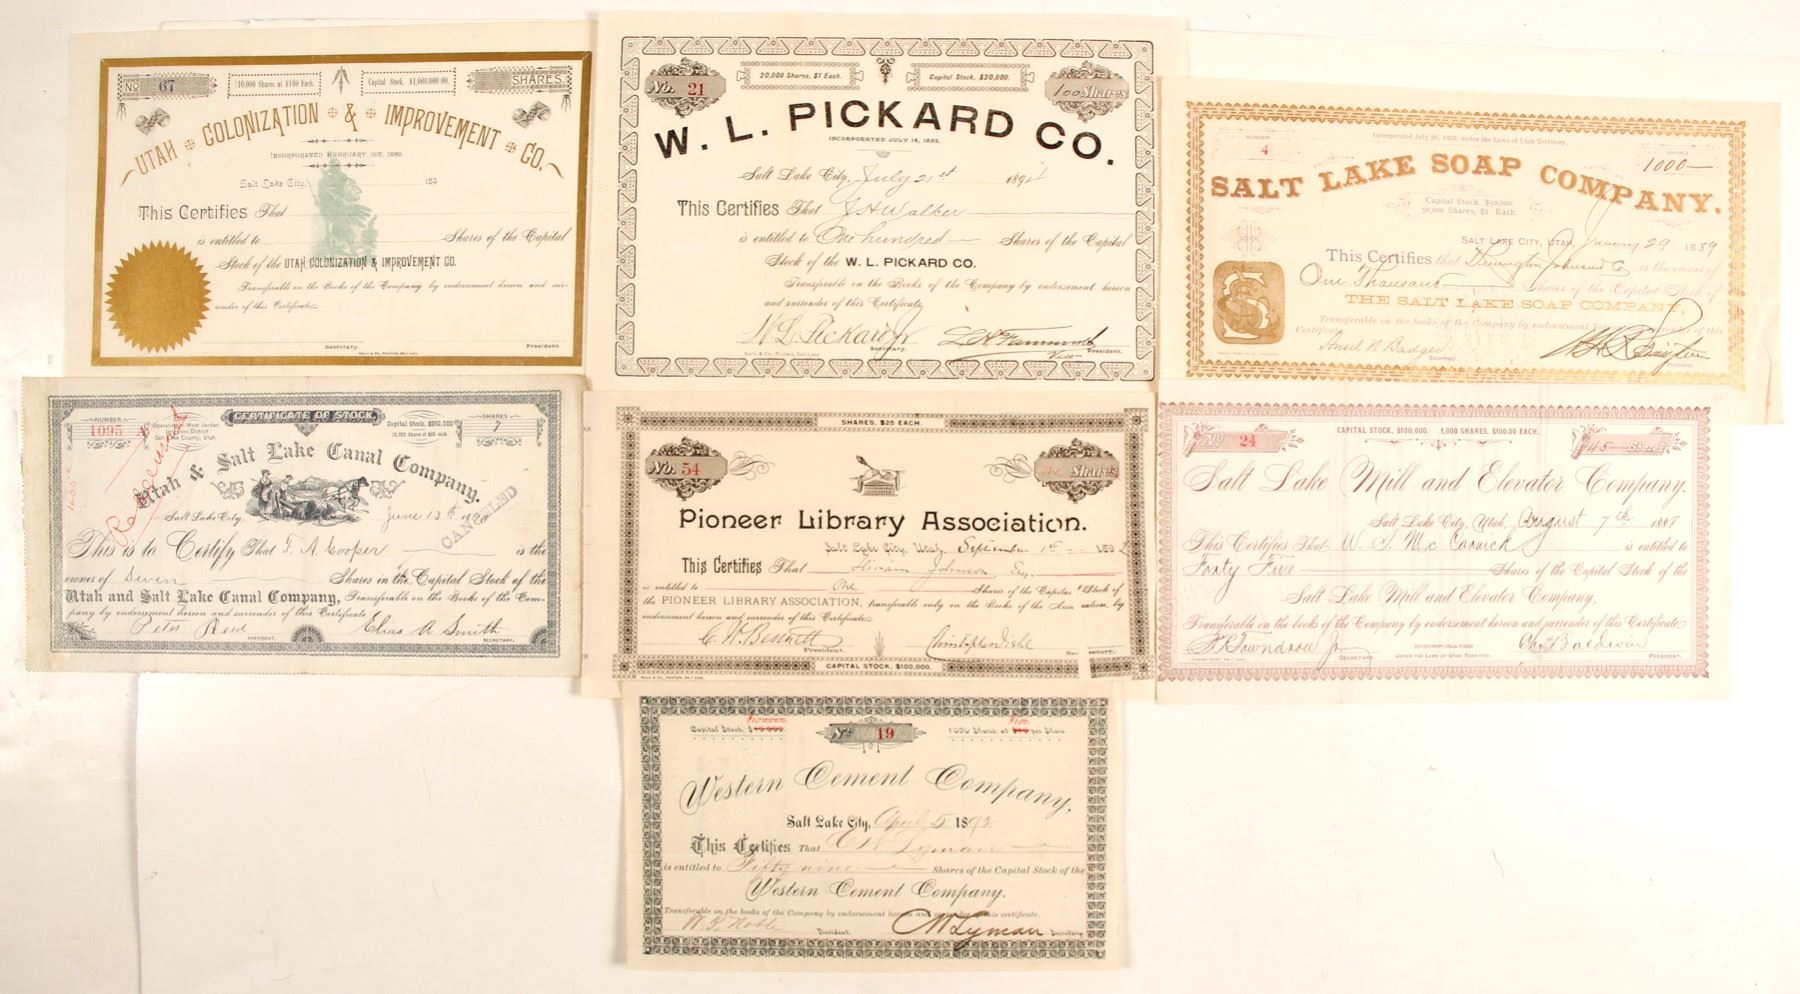 No 67
10,000 Shares at $100 Each.
Capital Stock, $1,000,000.00.
SHARES
UTAH COLONIZATION & IMPROVEMENT CO.
INCORPORATED FEBRUARY 1ST, 1892.
Salt Lake City, 189
This Certifies That
is entitled to Shares of the Capital
Stock of the UTAH COLONIZATION & IMPROVEMENT CO.
Transferable on the Books of the Company by endorsement hereon and sur-
render of this Certificate
Secretary. President.
No. 21
20,000 Shares, $1 Each.
Capital Stock, $20,000.
100 Shares
W. L. PICKARD CO.
INCORPORATED JULY 14, 1892.
Salt Lake City, July 21st 189
This Certifies That J H Walker
is entitled to One hundred Shares of the Capital
Stock of the W. L. PICKARD CO.
Transferable on the Books of the Company by endorsement hereon
and surrender of this Certificate,
W L Pickard Jr
Secretary. Vice President.
NUMBER 4
Incorporated July 26, 1888, under the Laws of Utah Territory.
SHARES 1000
SALT LAKE SOAP COMPANY.
Capital Stock, $50,000.
50,000 Shares, $1. Each.
SALT LAKE CITY, UTAH, January 29 1889
This Certifies that is the owner of
One Thousand Shares of the Capital Stock of
THE SALT LAKE SOAP COMPANY,
Transferable on the books of the Company by endorsement surrender of this
Certificate.
Ansil N Badger
Secretary President.
NUMBER 1095
Operations in West Jordan
Irrigation District
Salt Lake County, Utah.
CERTIFICATE OF STOCK
Capital Stock, $250,000
10,000 Shares of $25 each.
SHARES 7
Utah & Salt Lake Canal Company.
Salt Lake City, June 13th
CANCELED
This is to Certify That F. A. Cooper is the
owner of Seven Shares in the Capital Stock of the
Utah and Salt Lake Canal Company, Transferable on the Books of the Com-
pany by endorsement hereon and surrender of this Certificate
Peter Reid Elias A Smith
PRESIDENT. SECRETARY.
SHARES, $25 EACH.
No. 54
one Shares
Pioneer Library Association.
Salt Lake City, Utah, September 1st 189
This Certifies That Hiram Johnson Esq.
is entitled to One Shares of the Capital Stock of
the PIONEER LIBRARY ASSOCIATION, transferable only on the Books of the Association, by
endorsement hereon and surrender of this Certificate
C. W. Bennett
President.
CAPITAL STOCK, $100,000.
No 24
CAPITAL STOCK, $100,000. 1,000 SHARES, $100.00 EACH.
45 Shares
Salt Lake Mill and Elevator Company.
Salt Lake City, Utah, August 7th 1888
This Certifies That W. S. McCornick is entitled to
Forty Five Shares of the Capital Stock of the
Salt Lake Mill and Elevator Company,
Transferable on the books of the Company by endorsement hereon and surrender of this Certificate
SECRETARY
INCORPORATED
UNDER THE LAWS OF UTAH TERRITORY.
Baldwin
PRESIDENT.
Capital Stock, $10,000
$100,000.
No 19
1000 Shares at $10 per Share
$100.
Western Cement Company.
Salt Lake City, April 5 1892
This Certifies That C W Lyman
is entitled to Fifty nine Shares of the Capital Stock of the
Western Cement Company.
Transferable on the books of the Company by endorsement hereon and surrender of this certificate.
W. P. Noble CW Lyman
President Secretary